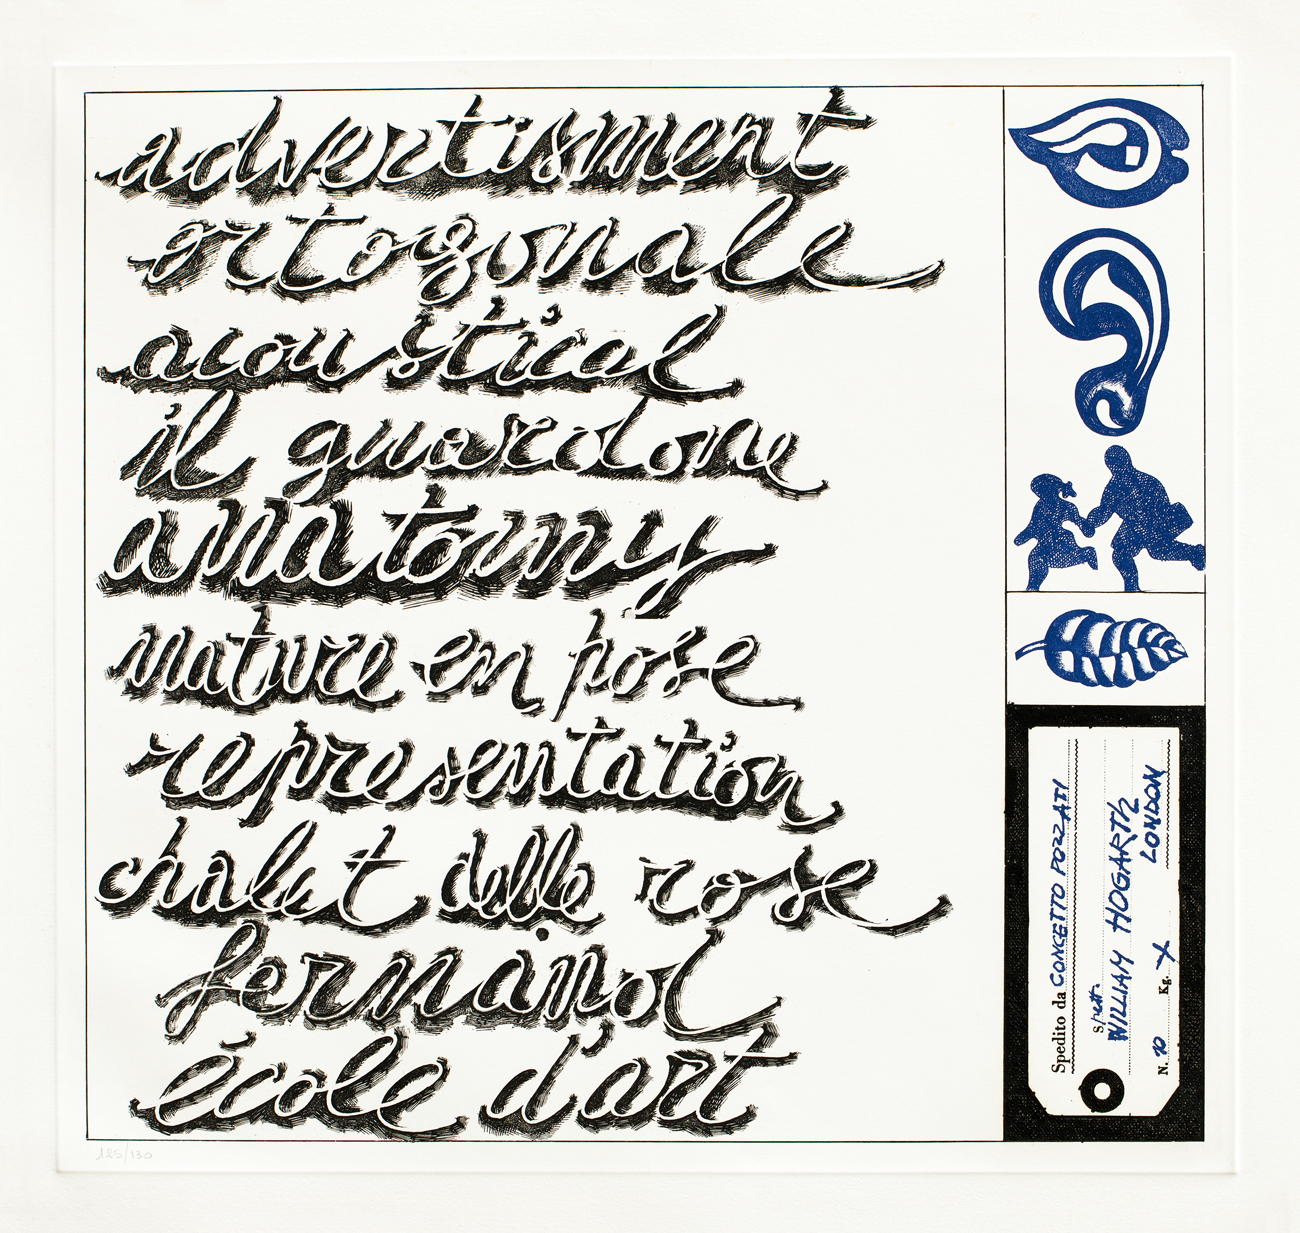 advertisment
ortogonale
acoustical
il guardone
anatomy
nature en pose
representation
chalet delle rose
fernand
école d'art
Spedito da CONCETTO POZZATI
WILLIAM HOGARTH
LONDON
N. 10 Kg. X
125/130